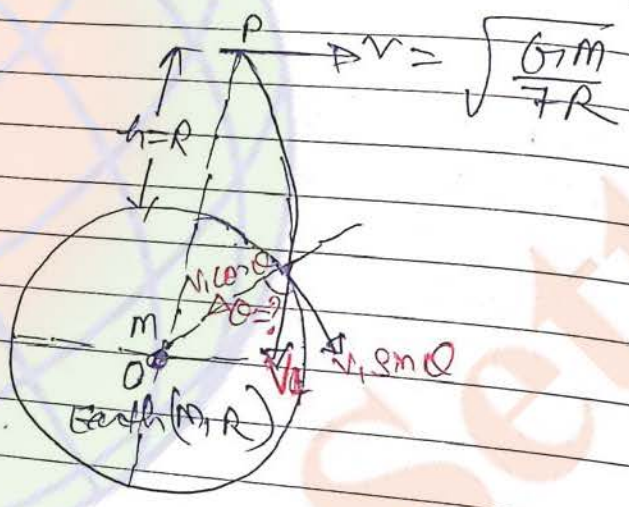 P
v = √(GM/7R)
h=R
v₁cosθ
θ=?
M
O
V₁
v₁ sinθ
Earth(M,R)
Set